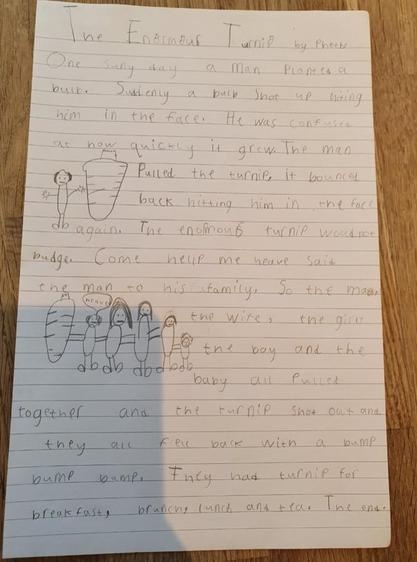 The Enormous Turnip by Pheebs
One suny day a man planted a
bulb. Suddenly a bulb shot up hiting
him in the face. He was confused
at how quickly it grew. The man
Pulled the turnip, it bounced
back hitting him in the face
again. The enormous turnip would not
budge. Come help me heave said
the man to his family. So the man,
heave
the wife, the girl
the boy and the
baby all pulled
together and the turnip shot out and
they all fell back with a bump
bump bump. They had turnip for
breakfast, brunch, lunch and tea. The end.